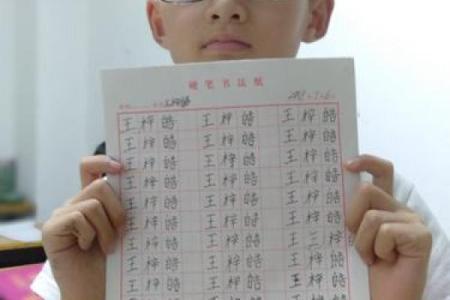 硬笔书法纸
王梓皓
王梓皓 王梓皓 王梓皓
王梓皓 王梓皓 王梓皓
王梓皓 王梓皓 王梓皓
王梓皓 王梓皓 王梓皓
王梓皓 王梓皓 王梓皓
王梓皓 王梓皓 王梓皓
王梓皓 王梓皓 王三梓
王梓皓 王梓皓 王梓皓
王梓皓 王梓皓 王梓皓